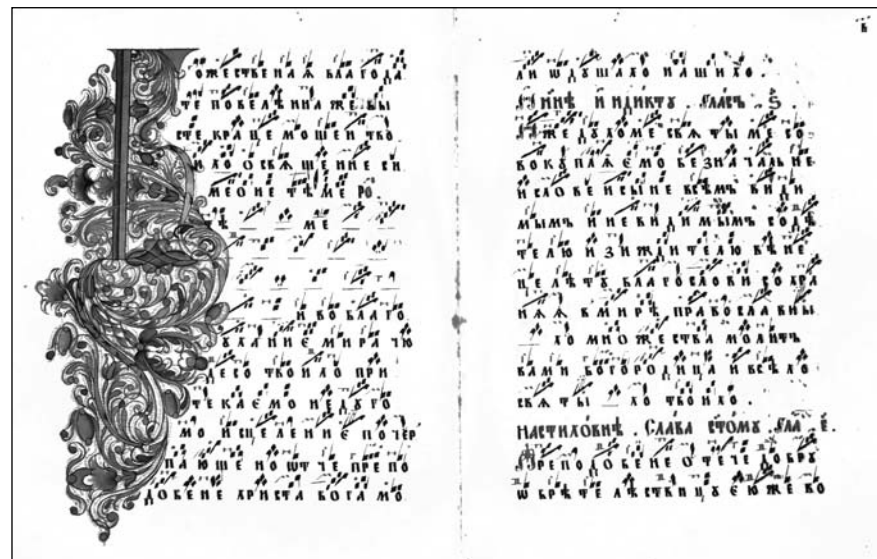 ОЖЕСТВЕНАѦ БЛАГОДА
ТЕ ПОВЕЛѢ ИНА ЖЕ БЫ
СТЕ РАЦЕ МОЩЕИ ТВО
ИХО ОСВѦЩЕНИЕ СИ
МЕОНЕ ТѢМЕ РО
МЕ
И ВО БЛАГО
УХАНИЄ МИРА ЧЮ
ДЕСО ТВОИХО ПРИ
ТЕКАЄМО НЕДУГО
МО ИСЦЕЛЕНИЄ ПОЧЕР
ПАЮЩЕ НО ѠТЧЕ ПРЕПО
ДОБЕНЕ ХРИСТА БОГА МО
В
ЛИ Ѡ ДУШАХО НАШИХО.
НИНѢ ИНДИКТУ. ГЛАСЪ. Ѕ.
ИЖЕ ДУХОМЕ СВѦТЫМЕ СО
ВОКУПЛѦЄМО БЕЗНАЧАЛЬНЕ
И СЛОВЕ И СЫНЕ ВСѢМЪ ВИДИ
МЫМЪ И НЕВИДИМЫМЪ СОДѢ
ТЕЛЮ И ЗИЖДИТЕЛЮ ВѢНЕ
ЦЕ ЛѢТУ БЛАГОСЛОВИ СОХРА
НѦѦ В МИРѢ ПРАВОСЛАВНЫ
ХО МНОЖЕСТВА МОЛИТЪ
ВАМИ БОГОРОДИЦА И ВСѢХО
СВѦТЫ ХО ТВОИХО.
НАСТИХОВНѢ. СЛАВА СТОМУ. ГЛА. Є.
ПРЕПОДОБЕНЕ ОТЕЧЕ ДОБРУ
ѠБРѢТЕ ЛѢСТВИЦУ ЄЮЖЕ ВО